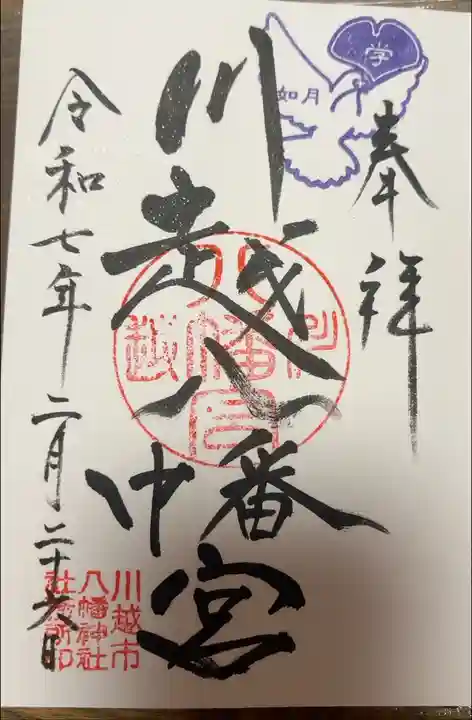 学
如月
奉拝
川越八幡宮
川越八幡宮
令和七年二月二十六日
川越市
八幡神社
社務所印